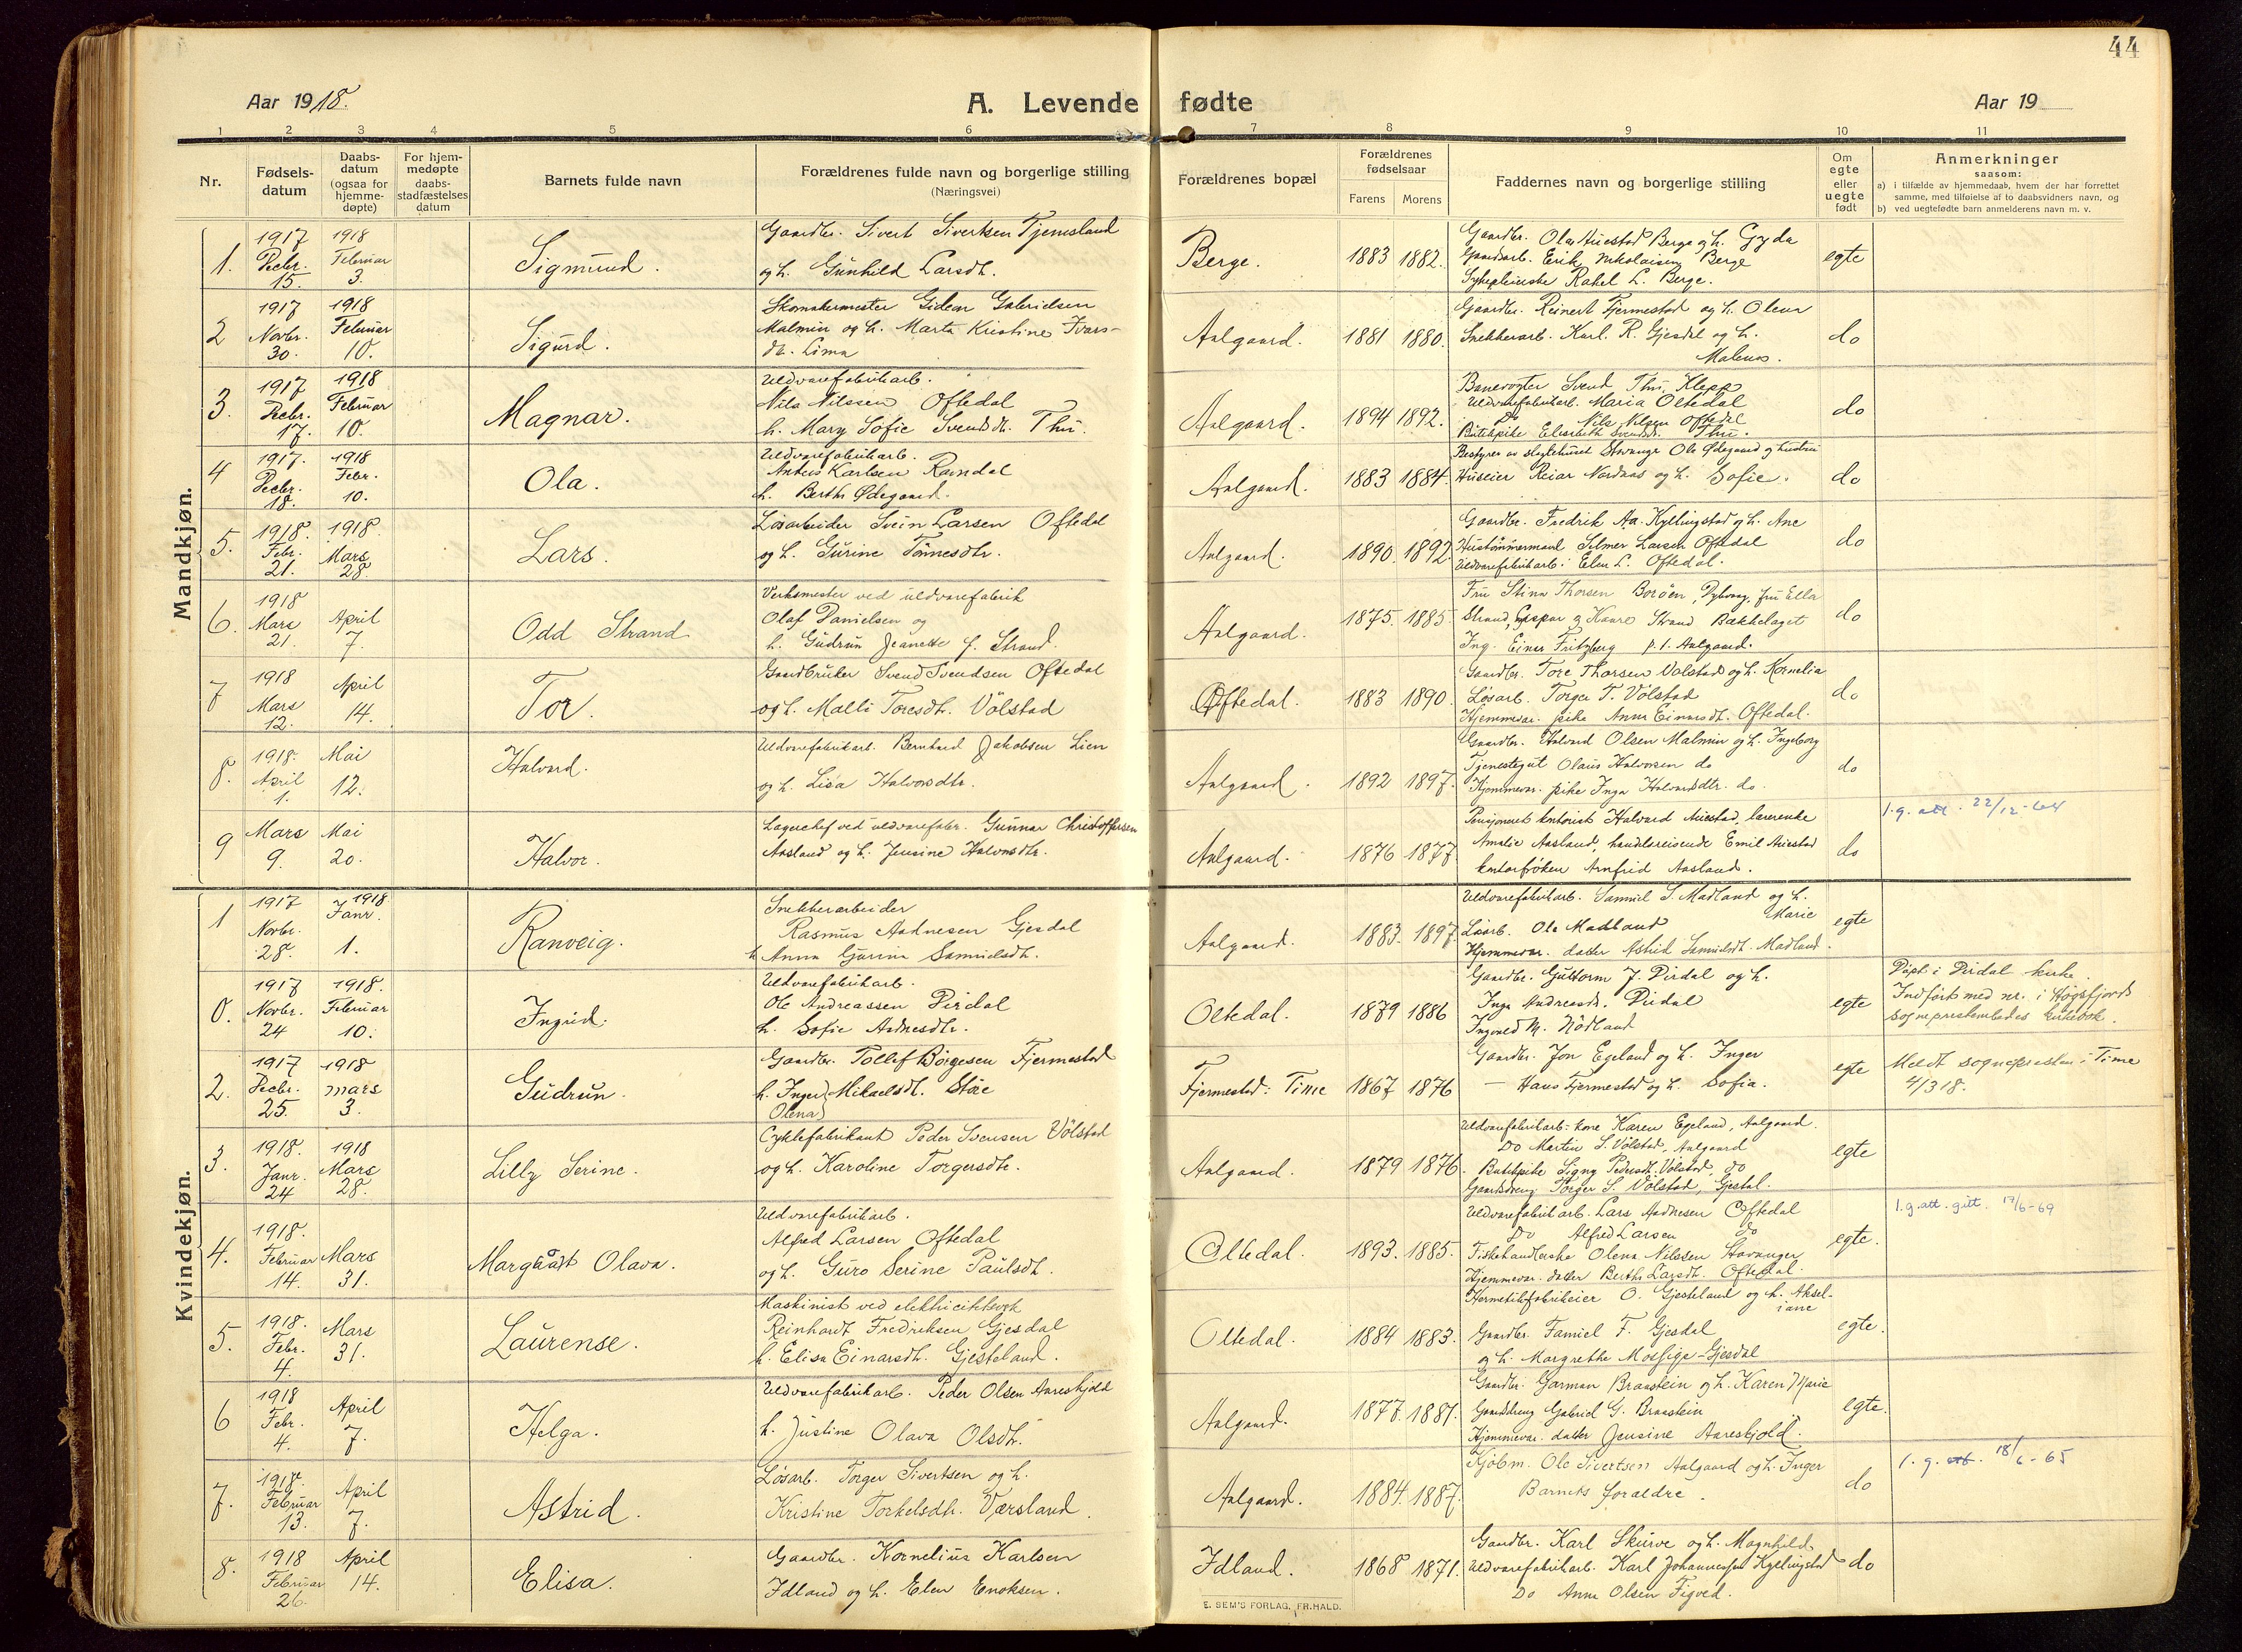 44
Aar 1918.
A. Levende fødte
Aar 19
1 2 3 4 5 6 7 8 9 10 11
Nr.
Fødsels-
datum
Daabs-
datum
(ogsaa for
hjemme-
døpte)
For hjem-
medøpte
daabs-
stadfæstelses
datum
Barnets fulde navn
Forældrenes fulde navn og borgerlige stilling
(Næringsvei)
Forældrenes bopæl
Forældrenes
fødselsaar
Farens Morens
Faddernes navn og borgerlige stilling
Om
egte
eller
uegte
født
Anmerkninger
saasom:
a) i tilfælde av hjemmedaab, hvem der har forrettet
samme, med tilføielse af to daabsvidners navn, og
b) ved uegtefødte barn anmelderens navn m. v.
Mandkjøn.
1.
1917 Decbr. 15.
1918 Februar 3.
Sigmund.
Gaardbr. Sivert Sivertsen Tjemsland
og h. Gunhild Larsdt.
Berge.
1883 1882.
Gaardbr. Ola Auestad Berge og h. Gyda
Gaardarb. Erik Nikolaisen Berge
Sykepleierske Rakel L. Berge.
egte
2
1917 Novbr. 30.
1918 Februar 10.
Sigurd.
Skomakermester Gideon Gabrielsen
Malmin og h. Marta Kristine Ivars-
dt. Lima
Aalgaard.
1881 1880.
Gaardbr. Reinert Fjermestad og h. Olena
Snekkerarb. Karl. R. Gjesdal og h.
Malena.
do
3.
1917 Decbr. 17.
1918 Februar 10.
Magnar.
Uldvarefabrikarb.
Nils Nilssen Oftedal
h. Mary Sofie Svendsdt. Thu.
Aalgaard.
1894 1892.
Banevogter Svend Thu, Klepp
Uldvarefabrikarb. Maria Oltedal
Do Nils Nilsen Oftedal
Butikpike Elisabeth Svendsdt. Thu.
do
4
1917. Decbr. 18.
1918 Febr. 10.
Ola.
Uldvarefabrikarb.
Karlsen Ramdal
h. Bertha Ødegaard.
Aalgaard.
1883 1884.
Bestyrer av slagtehuset Stavanger Ole Ødegaard og hustru
Huseier Reiar Nordaas og h. Sofie.
do
5.
1918. Febr. 21.
1918. Mars 28.
Lars.
Løsarbeider Svein Larsen Oftedal
og h. Gurine Tønnesdtr.
Aalgaard.
1890. 1892.
Gaardbr. Fredrik Aa. Kyllingstad og h. Ane
Hustømmermand Selmer Larsen Oftedal
Uldvarefabrikarb. Elen L. Oftedal.
do
6.
1918 Mars 21.
April 7.
Odd Strand
Verksmester ved uldvarefabrik
Olaf Danielsen og
h. Gudrun Jeanette f. Strand.
Aalgaard.
1875. 1885.
Fru Stina Thorsen Borøen, Dybvaag, fru Ella
Strand, Gaspar & Kaare Strand Bækkelaget
Ing. Einar Fritzberg p.t. Aalgaard.
do
7
1918 Mars 12.
April 14.
Tor.
Gaardbruker Svend Svendsen Oftedal
og h. Malli Toresdt. Vølstad
Oftedal.
1883 1890.
Gaardbr. Tore Thorsen Vølstad og h. Kornelia
Løsarb. Torger T. Vølstad
Hjemmevær. pike Anna Einarsdt. Oftedal.
do
8.
1918. April 1.
Mai 12.
Halvard.
Uldvarefabrikarb. Bernhard Jakobsen Lien
og h. Lisa Halvorsdtr.
Aalgaard.
1892 1897.
Gaardbr. Halvard Olsen Malmin og h. Ingeborg
Tjenestegut Olaus Halvorsen do
Hjemmevær. pike Inga Halvardsdtr. do.
do
9
Mars 9.
Mai 20.
Halvor.
Lagerchef ved uldvarefabr. Gunnar Christoffersen
Aasland og h. Jensine Halvorsdtr.
Aalgaard.
1876 1877
Pensjoneret kontorist Halvard Auestad, lærerinde
Amalie Aasland, handelsreisende Emil Auestad
kontorfrøken Arnfrid Aasland.
do
1.g. att. 22/12-64
Kvindekjøn.
1
1917 Novbr. 28.
1918 Janr. 1.
Ranveig.
Snekkerarbeider
Rasmus Aadnesen Gjesdal
h Anna Gurina Samuelsdt.
Aalgaard.
1883. 1897.
Uldvarefabrikarb. Samuel S. Madland og h.
Marie
Løsarb. Ola Madland
Hjemmevær. datter Astrid Samuelsdt. Madland.
egte
0.
1917 Novbr. 24
1918. Februar 10.
Ingrid.
Uldvarefabrikarb.
Ole Andreassen Dirdal
h. Sofie Aadnesdtr.
Oltedal.
1879 1886
Gaardbr. Guttorm J. Dirdal og h.
Inga Andreasdt. Dirdal
Ingvald M. Nødland
egte
Døpt i Dirdal kirke.
Indført med nr. i Høgsfjords
sogneprestembedes kirkebok.
2.
1917 Decbr. 25.
1918 mars 3.
Gudrun.
Gaardbr. Tollef Børgesen Fjermestad
h. Inger Mikaelsdt. Støle
Olena
Fjermestad: Time
1867 1876
Gaardbr. Jon Egeland og h. Inger
— Hans Fjermestad og h. Sofia.
egte
Meldt sognepresten i Time
4/3 18.
3.
1918. Janr. 24
1918 Mars 28.
Lilly Serine.
Cyklefabrikant Peder Svensen Vølstad
og h. Karoline Torgersdtr.
Aalgaard.
1879 1876.
Uldvarefabrikarb.-kone Karen Egeland, Aalgaard.
Do Martin S. Vølstad, Aalgaard
Butikpike Signy Pedersdt. Vølstad, do
Gaardsdreng Torger S. Vølstad, Gjesdal.
egte
4.
1918. Februar 14.
Mars 31.
Margaart Olava.
Uldvarefabrikarb.
Alfred Larsen Oftedal
og h. Guro Serine Paulsdt.
Oltedal.
1893. 1885.
Uldvarefabrikarb. Lars Aadnesen Oftedal
Do Alfred Larsen do
Fiskehandlerske Olena Nilssen Stavanger
Hjemmevær. datter Bertha Larsdt. Oftedal.
egte.
1.g. att. gitt. 17/6-69
5.
1918. Febr. 4.
Mars 31.
Laurense.
Maskinist ved elektricitetsverk
Reinhardt Fredriksen Gjesdal
h. Elisa Einarsdt. Gjesteland.
Oltedal.
1884 1883.
Hermetikfabrikeier O. Gjesteland og h. Aksel-
iane
Gaardbr. Famiel F. Gjesdal
og h. Margrethe Mossige-Gjesdal
egte.
6
1918 Febr. 4.
April 7.
Helga.
Uldvarefabrikarb. Peder Olsen Aareskjold
h. Justine Olava Olsdt.
Aalgaard.
1877. 1887.
Gaardbr. Garman Braastein og h. Karen Marie
Gaardsdreng Gabriel G. Braastein
Hjemmevær. datter Jensine Aareskjold.
egte.
7.
1918. Februar 13.
April 7.
Astrid.
Løsarb. Torger Sivertsen og h.
Kristine Torkelsdtr. Værsland.
Aalgaard.
1884. 1887.
Kjøbm. Ole Sivertsen Aalgaard og h. Inger
Barnets forældre.
do
1.g. att. 18/6-65
8.
1918 Februar 26.
April 14.
Elisa.
Gaardbr. Kornelius Karlsen
Idland og h. Elen Enoksen.
Idland.
1868 1871.
Gaardbr. Karl Skurve og h. Magnhild
Uldvarefabrikarb. Karl Johannessen Kyllingstad
Do Anna Olsen Figved.
do
E. SEM'S FORLAG, FR.HALD.